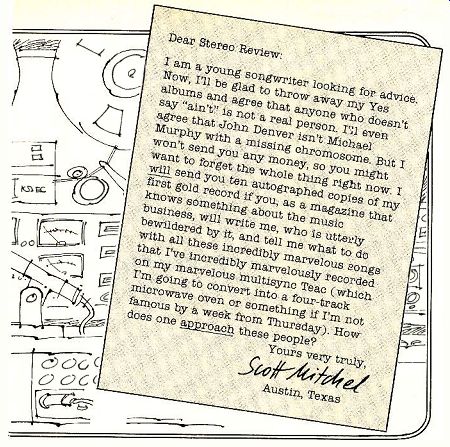 Dear Stereo Review:
I am a young songwriter looking for advice.
Now, I'll be glad to throw away my Yes
albums and agree that anyone who doesn't
say "ain't" is not a real person. I'll even
agree that John Denver isn't Michael
Murphy with a missing chromosome. But I
won't send you any money, so you might
want to forget the whole thing right now. I
will send you ten autographed copies of my
first gold record if you, as a magazine that
knows something about the music
business, will write me, who is utterly
bewildered by it, and tell me what to do
with all these incredibly marvelous songs
that I've incredibly marvelously recorded
on my marvelous multisync Teac (which
I'm going to convert into a four-track
microwave oven or something if I'm not
famous by a week from Thursday). How
does one approach these people?
Yours very truly,
Scott Mitchel
Austin, Texas